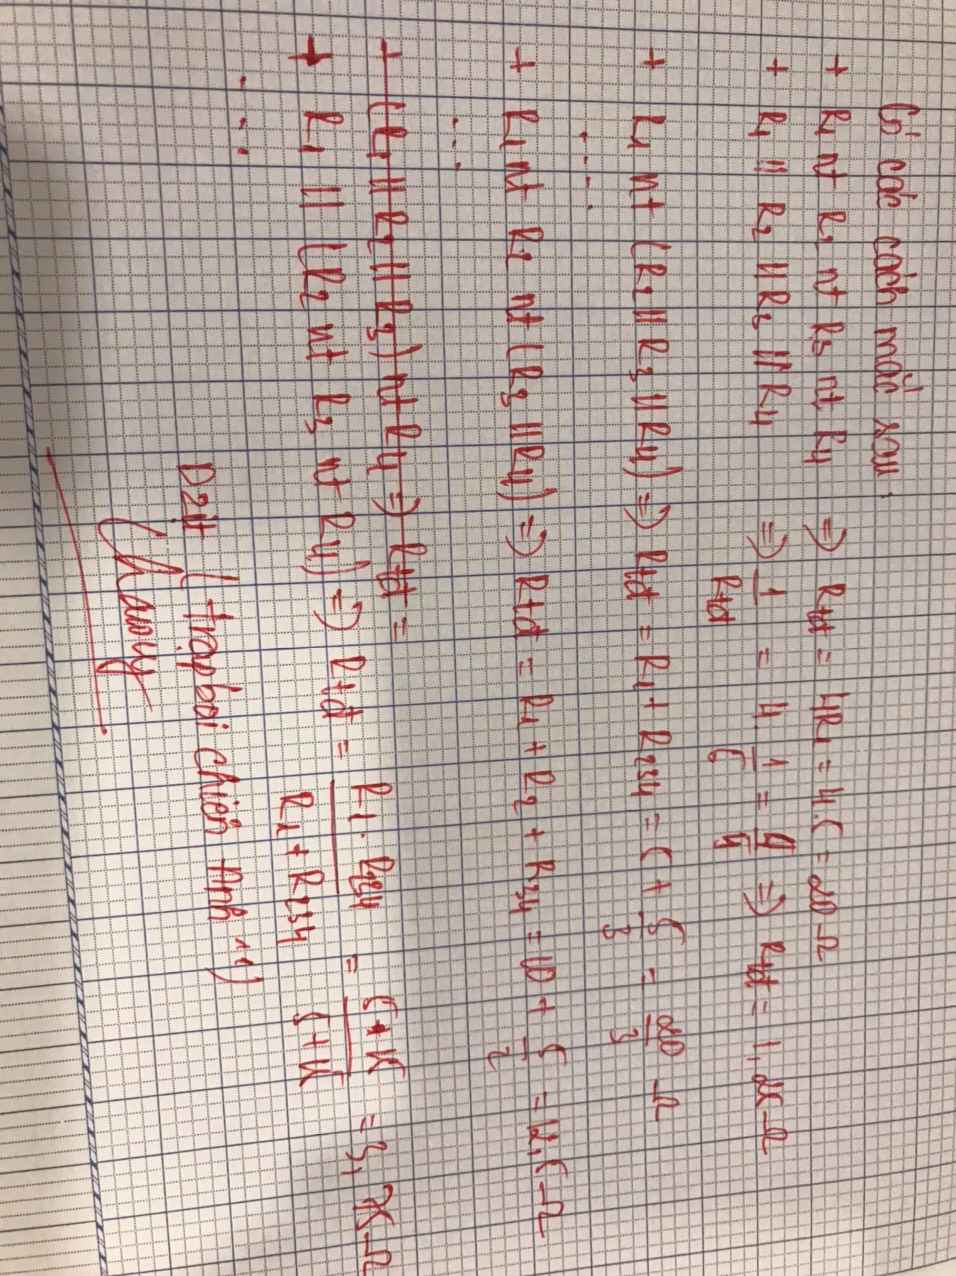 Có các cách mắc sau:
+ R1 nt R2 nt R3 nt R4 => Rtđ = 4R1 = 4.5 = 20 Ω
+ R1 // R2 // R3 // R4 => 1/Rtđ = 4. 1/5 = 4/5 => Rtđ = 1,25 Ω
+ R1 nt (R2 // R3 // R4) => Rtđ = R1 + R234 = 5 + 5/3 = 20/3 Ω
...
+ R1 nt R2 nt (R3 // R4) => Rtđ = R1 + R2 + R34 = 10 + 5/2 = 12,5 Ω
...
+ (R1 // R2 // R3) nt R4 => Rtđ =
+ R1 // (R2 nt R3 nt R4) => Rtđ = R1.R234/R1 + R234 = 5*15/5+15 = 3,75 Ω
...